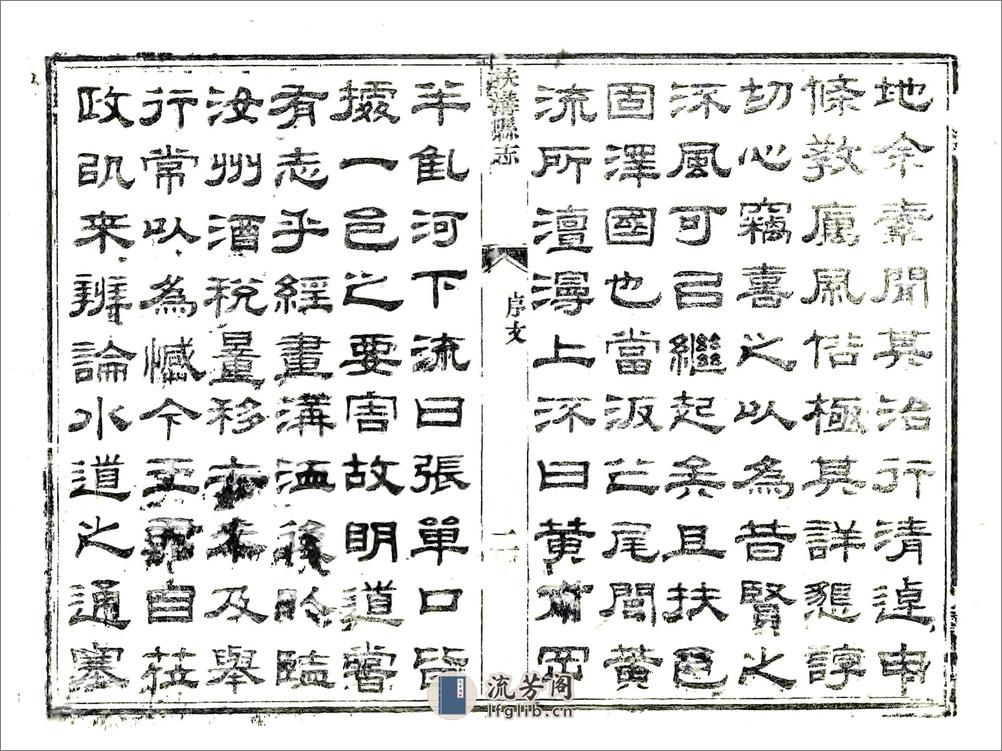 地余素聞其治行清逴申
條教厲風俗極其詳懇諄
切心竊喜之以為昔賢之
㳅風可已繼起矣且扶邑
固澤國也當汳之尾閭黃
流所澶漫上㳅曰黃甫岡
扶溝縣志
序文
二
半截河下流曰張單口皆
據一邑之要害故明道嘗
有志乎經畫溝洫後臨
汝州酒稅量移去未及舉
行常以為憾今王自莅
政以来辨論水道之通塞
流芳阁
lfglib.cn